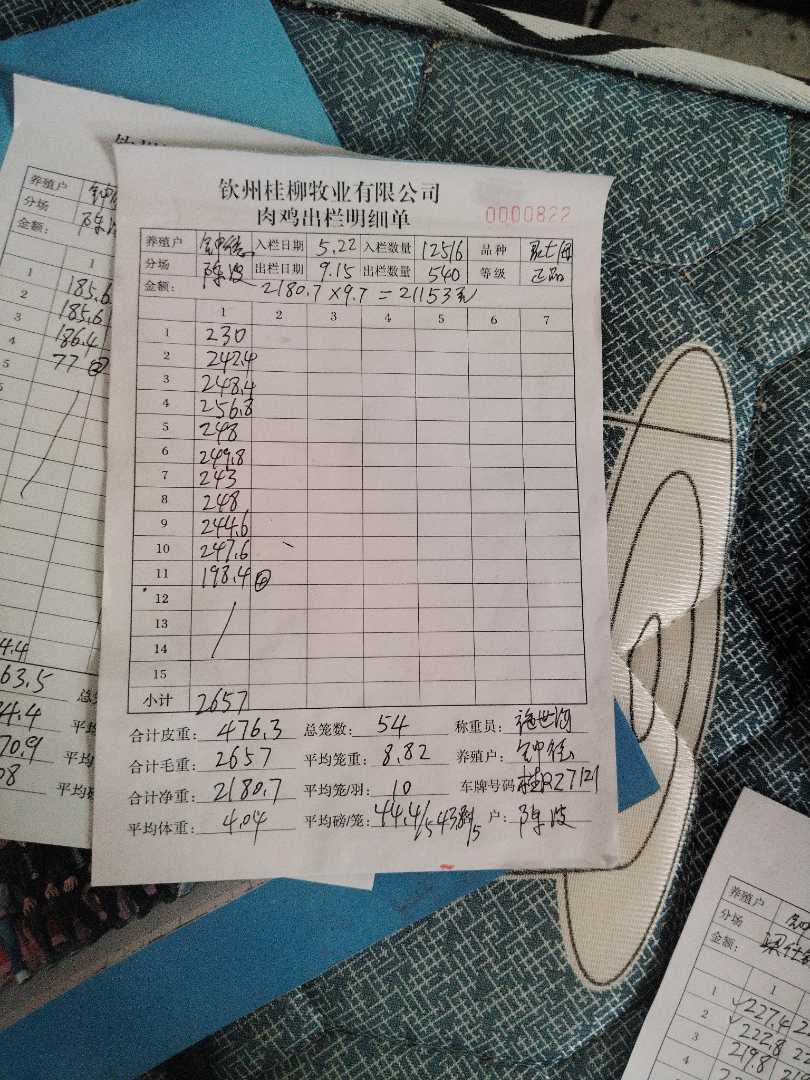 钦州桂柳牧业有限公司
肉鸡出栏明细单
0000822
养殖户 入栏日期 5.22 入栏数量 12516 品种
分场 陈波 出栏日期 9.15 出栏数量 540 等级 正品
金额: 2180.7×9.7=21153元
1 2 3 4 5 6 7
1 230
2 242.4
3 248.4
4 256.8
5 248
6 249.8
7 243
8 248
9 244.6
10 247.6
11 198.4 ④
12
13
14
15
小计 2657
合计皮重: 476.3 总笼数: 54 称重员:
合计毛重: 2657 平均笼重: 8.82 养殖户:
合计净重: 2180.7 平均笼/羽: 10 车牌号码 桂R27121
平均体重: 4.04 平均磅/笼: 44.4/5 户: 陈波
养殖户
分场 陈波
金额:
1
1 185.6
2 185.6
3 186.4
4 77 ②
5
4.4
63.5
34.4 平均
70.9 平均
08 平均
养殖户
分场
金额:
1
1 227.4
2 222.8
3 219.8
4